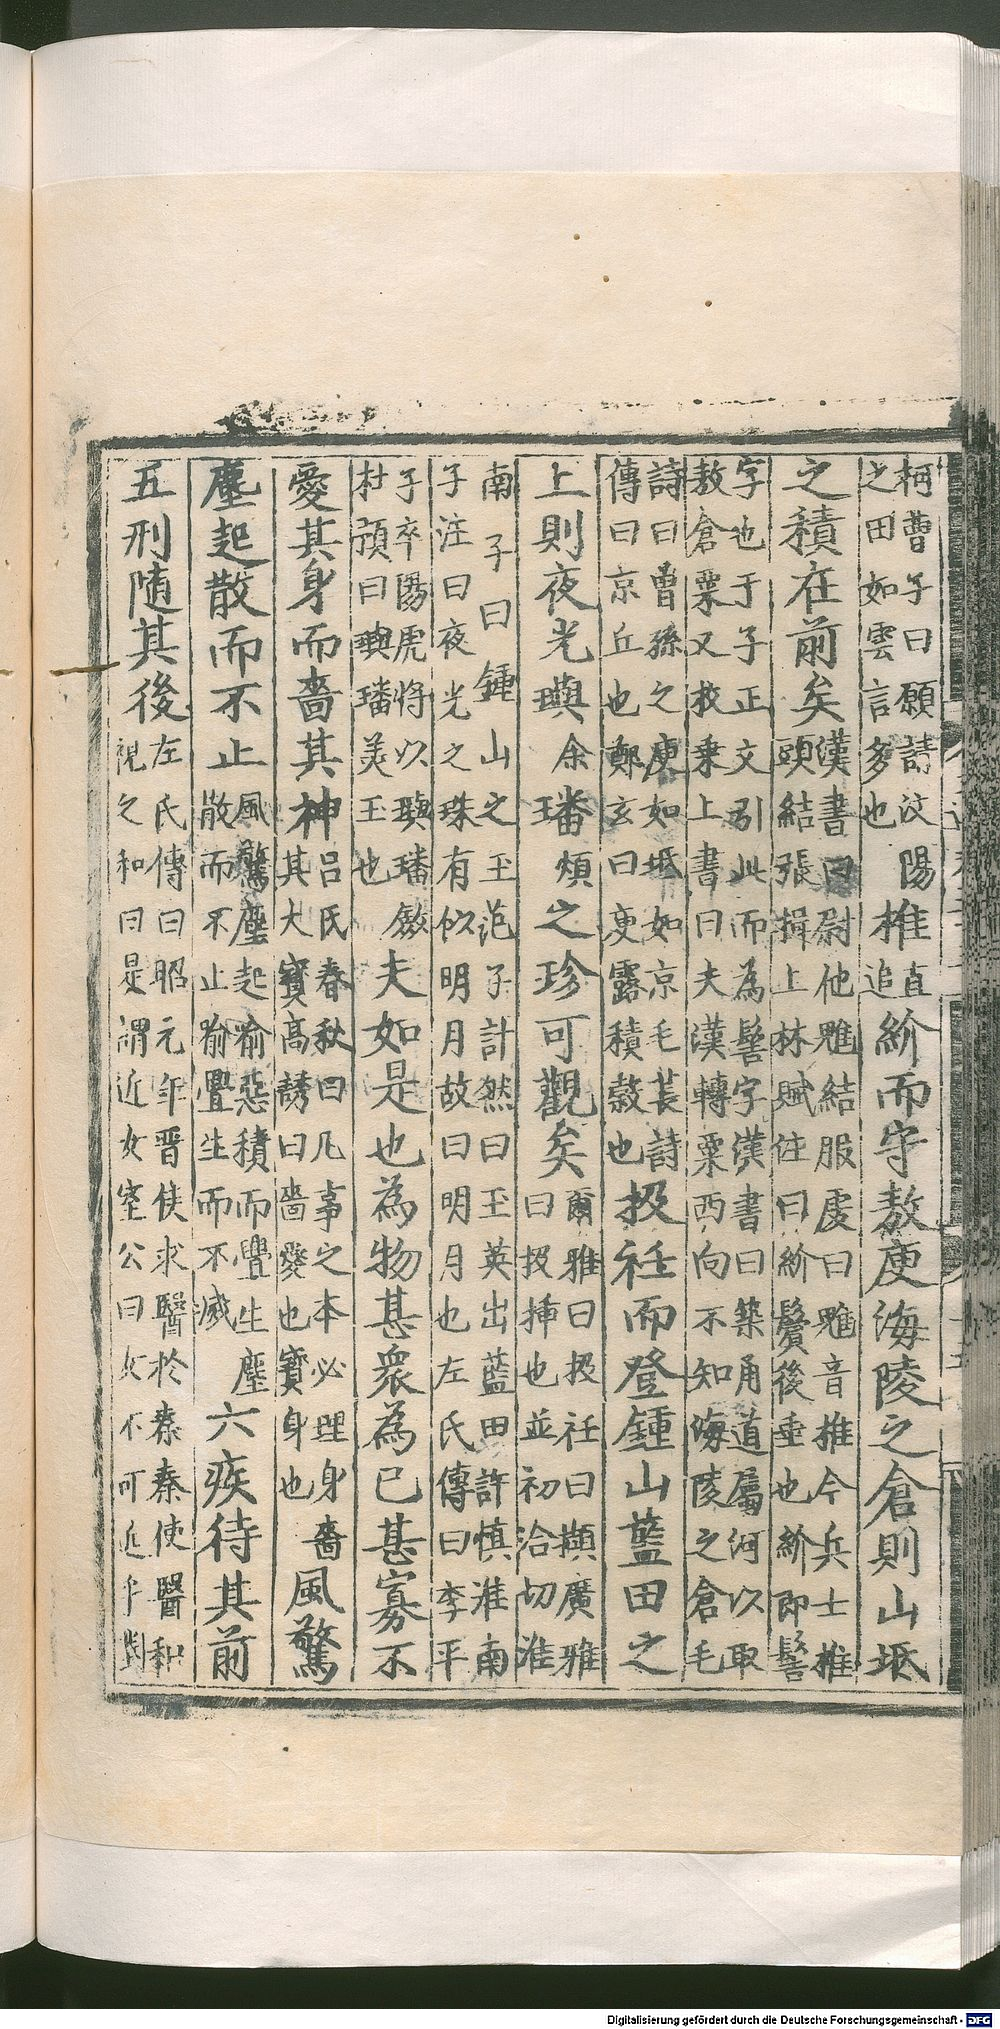 稱曹子曰願請汶陽
之田如雲言多也
椎直追紒而守敖庾海陵之倉則山坻
之積在前矣
漢書曰尉他魋結服虔曰魋音椎今兵士椎
頭結張揖上林賦注曰紒鬢後垂也紒即髻
字也于子正文引此而為髻字漢書曰築甬道屬河以取
敖倉粟又枚乗上書曰夫漢轉粟西向不知海陵之倉毛
詩曰曽孫之庾如坻如京毛萇詩
傳曰京丘也鄭玄曰庾露積穀也
扱衽而登鍾山藍田之
上則夜光璵余璠煩之珍可觀矣
爾雅曰扱衽曰擷廣雅
曰扱挿也並初洽切淮
南子曰鍾山之玉范子計然曰玉英出藍田許慎淮南
子注曰夜光之珠有似明月故曰明月也左氏傳曰李平
子卒陽虎將以璵璠斂
杜預曰璵璠美玉也
夫如是也為物甚衆為已甚寡不
愛其身而嗇其神
吕氏春秋曰凡事之本必理身嗇
其大寳高誘曰嗇愛也寳身也
風驚
塵起散而不止
風驚塵起喻惡積而舋生塵
散而不止喻舋生而不滅
六疾待其前
五刑随其後
左氏傳曰昭元年晋侯求醫於秦秦使醫和
視之和曰是謂近女室公曰女不可近乎對
Digitalisierung gefördert durch die Deutsche Forschungsgemeinschaft - DFG